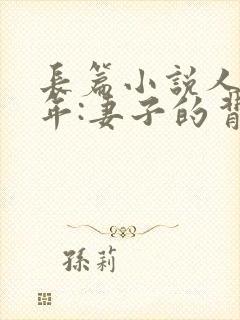 長篇小説人
年:妻子的背
孫莉